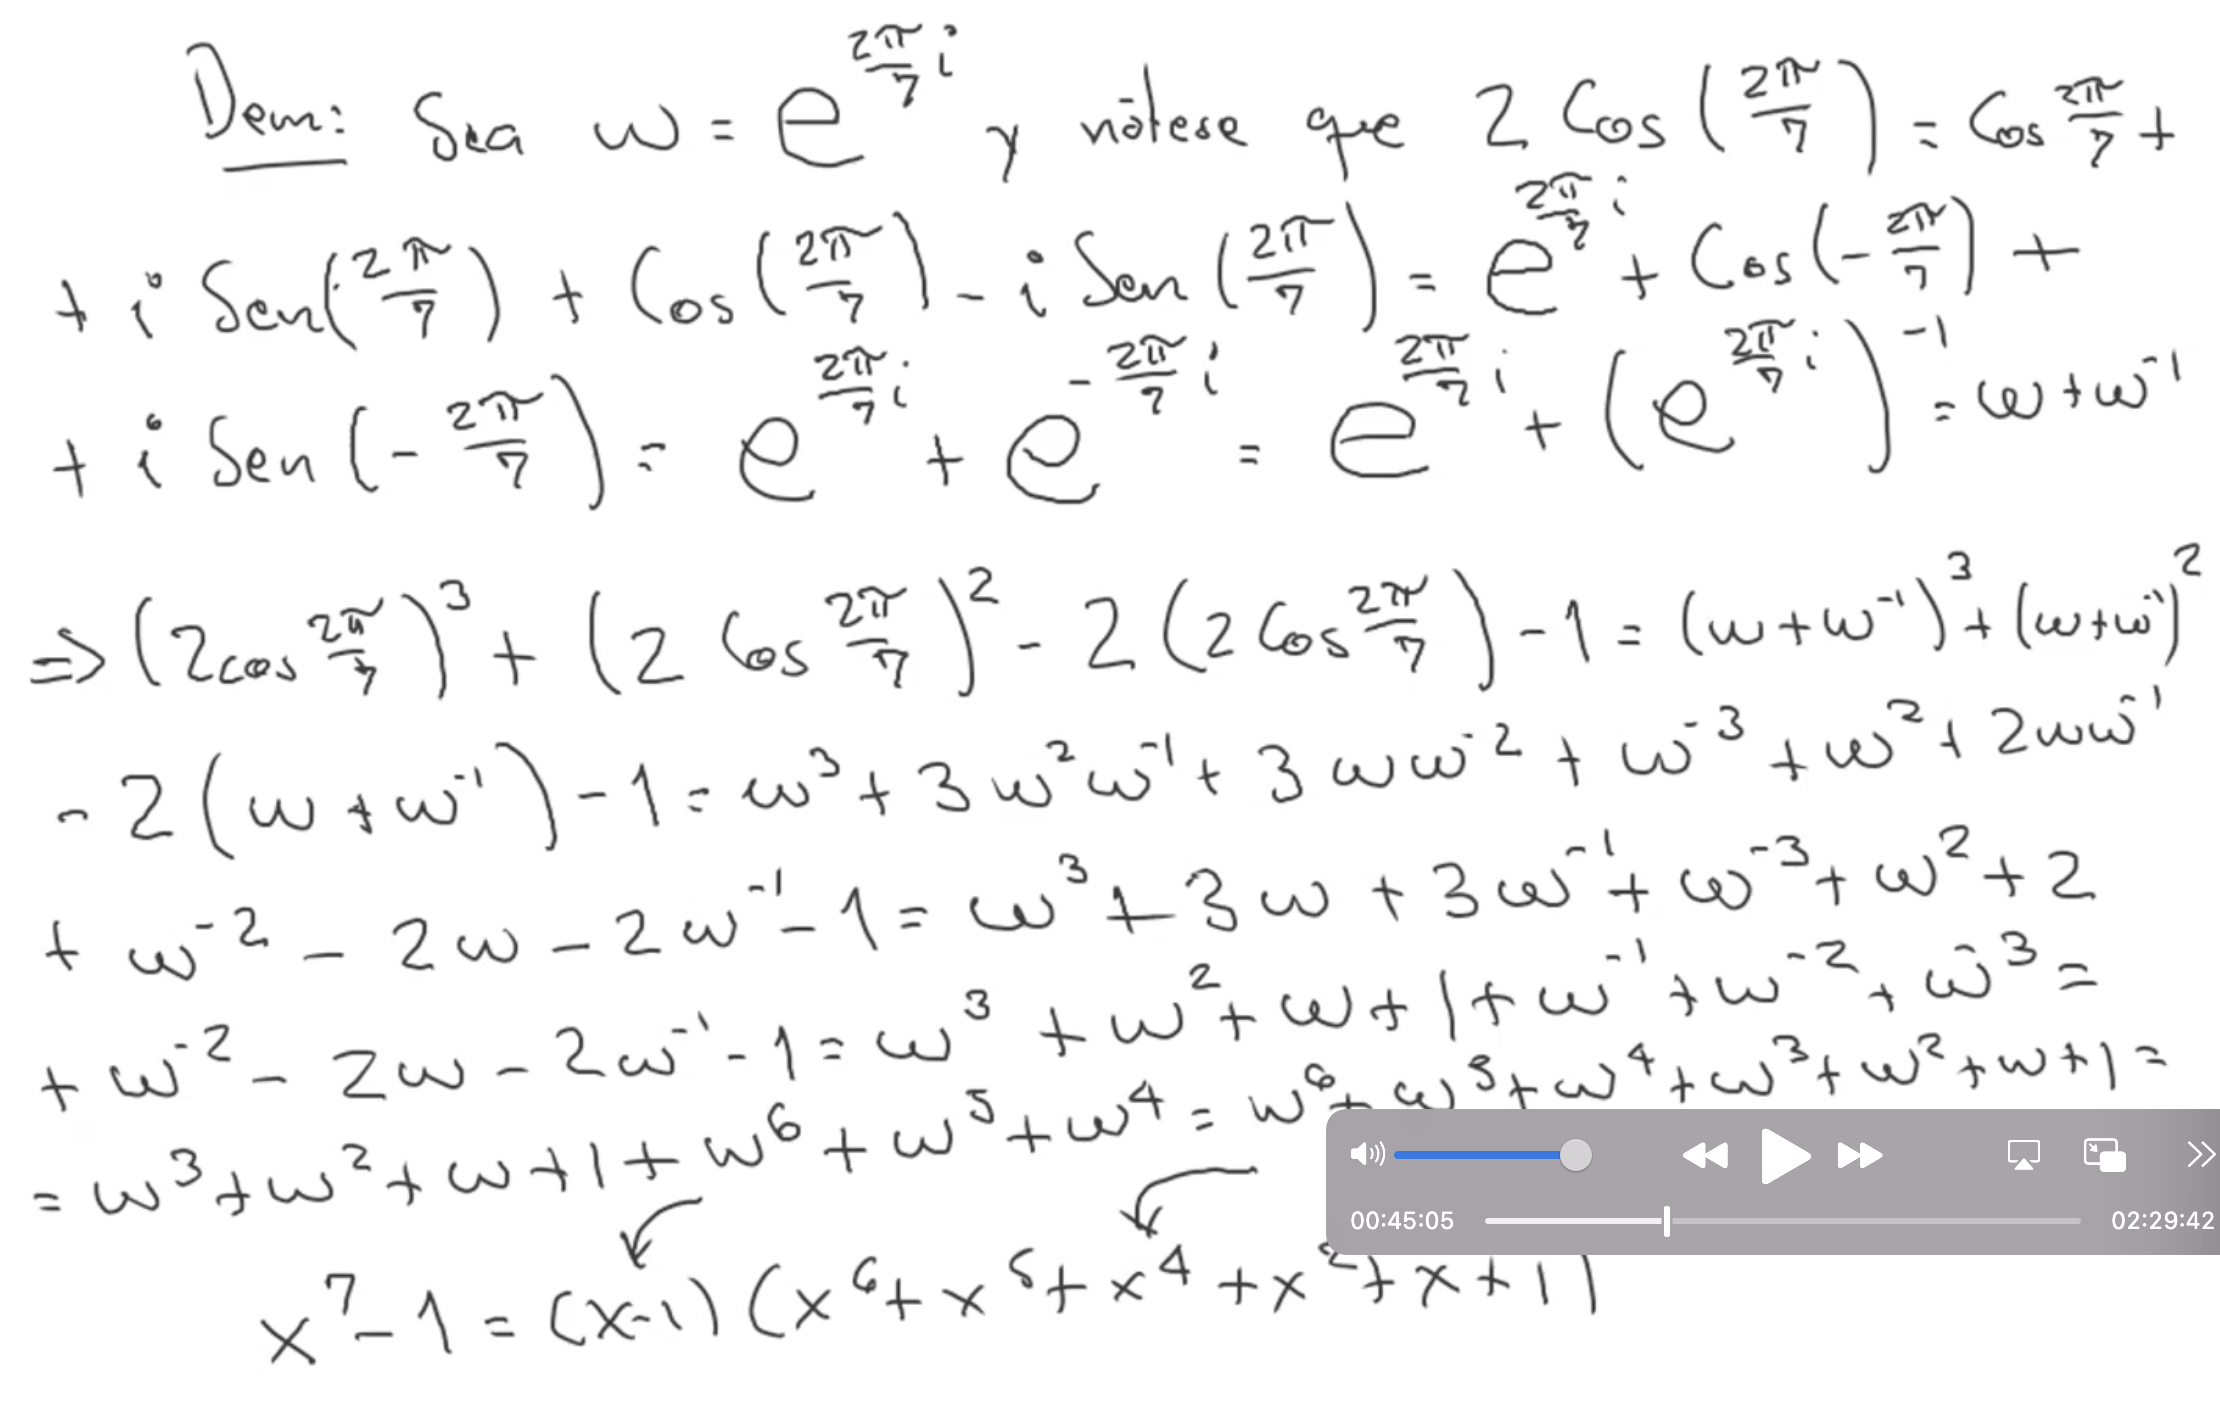 Dem: Sea w = e^{\frac{2π}{7}i} y nótese que 2 Cos(\frac{2π}{7}) = Cos \frac{2π}{7} +
+ i Sen(\frac{2π}{7}) + Cos(\frac{2π}{7}) - i Sen(\frac{2π}{7}) = e^{\frac{2π}{7}i} + Cos(-\frac{2π}{7}) +
+ i Sen(-\frac{2π}{7}) = e^{\frac{2π}{7}i} + e^{-\frac{2π}{7}i} = e^{\frac{2π}{7}i} + (e^{\frac{2π}{7}i})^{-1} = w + w^{-1}
=> (2cos \frac{2π}{7})^3 + (2 Cos \frac{2π}{7})^2 - 2(2 Cos \frac{2π}{7}) - 1 = (w + w^{-1})^3 + (w + w^{-1})^2
- 2(w + w^{-1}) - 1 = w^3 + 3w^2w^{-1} + 3ww^{-2} + w^{-3} + w^2 + 2ww^{-1}
+ w^{-2} - 2w - 2w^{-1} - 1 = w^3 + 3w + 3w^{-1} + w^{-3} + w^2 + 2
+ w^{-2} - 2w - 2w^{-1} - 1 = w^3 + w^2 + w + 1 + w^{-1} + w^{-2} + w^{-3} =
= w^3 + w^2 + w + 1 + w^6 + w^5 + w^4 = w^6 + w^5 + w^4 + w^3 + w^2 + w + 1 =
x^7 - 1 = (x-1)(x^6 + x^5 + x^4 + x^2 + x + 1)
00:45:05 02:29:42